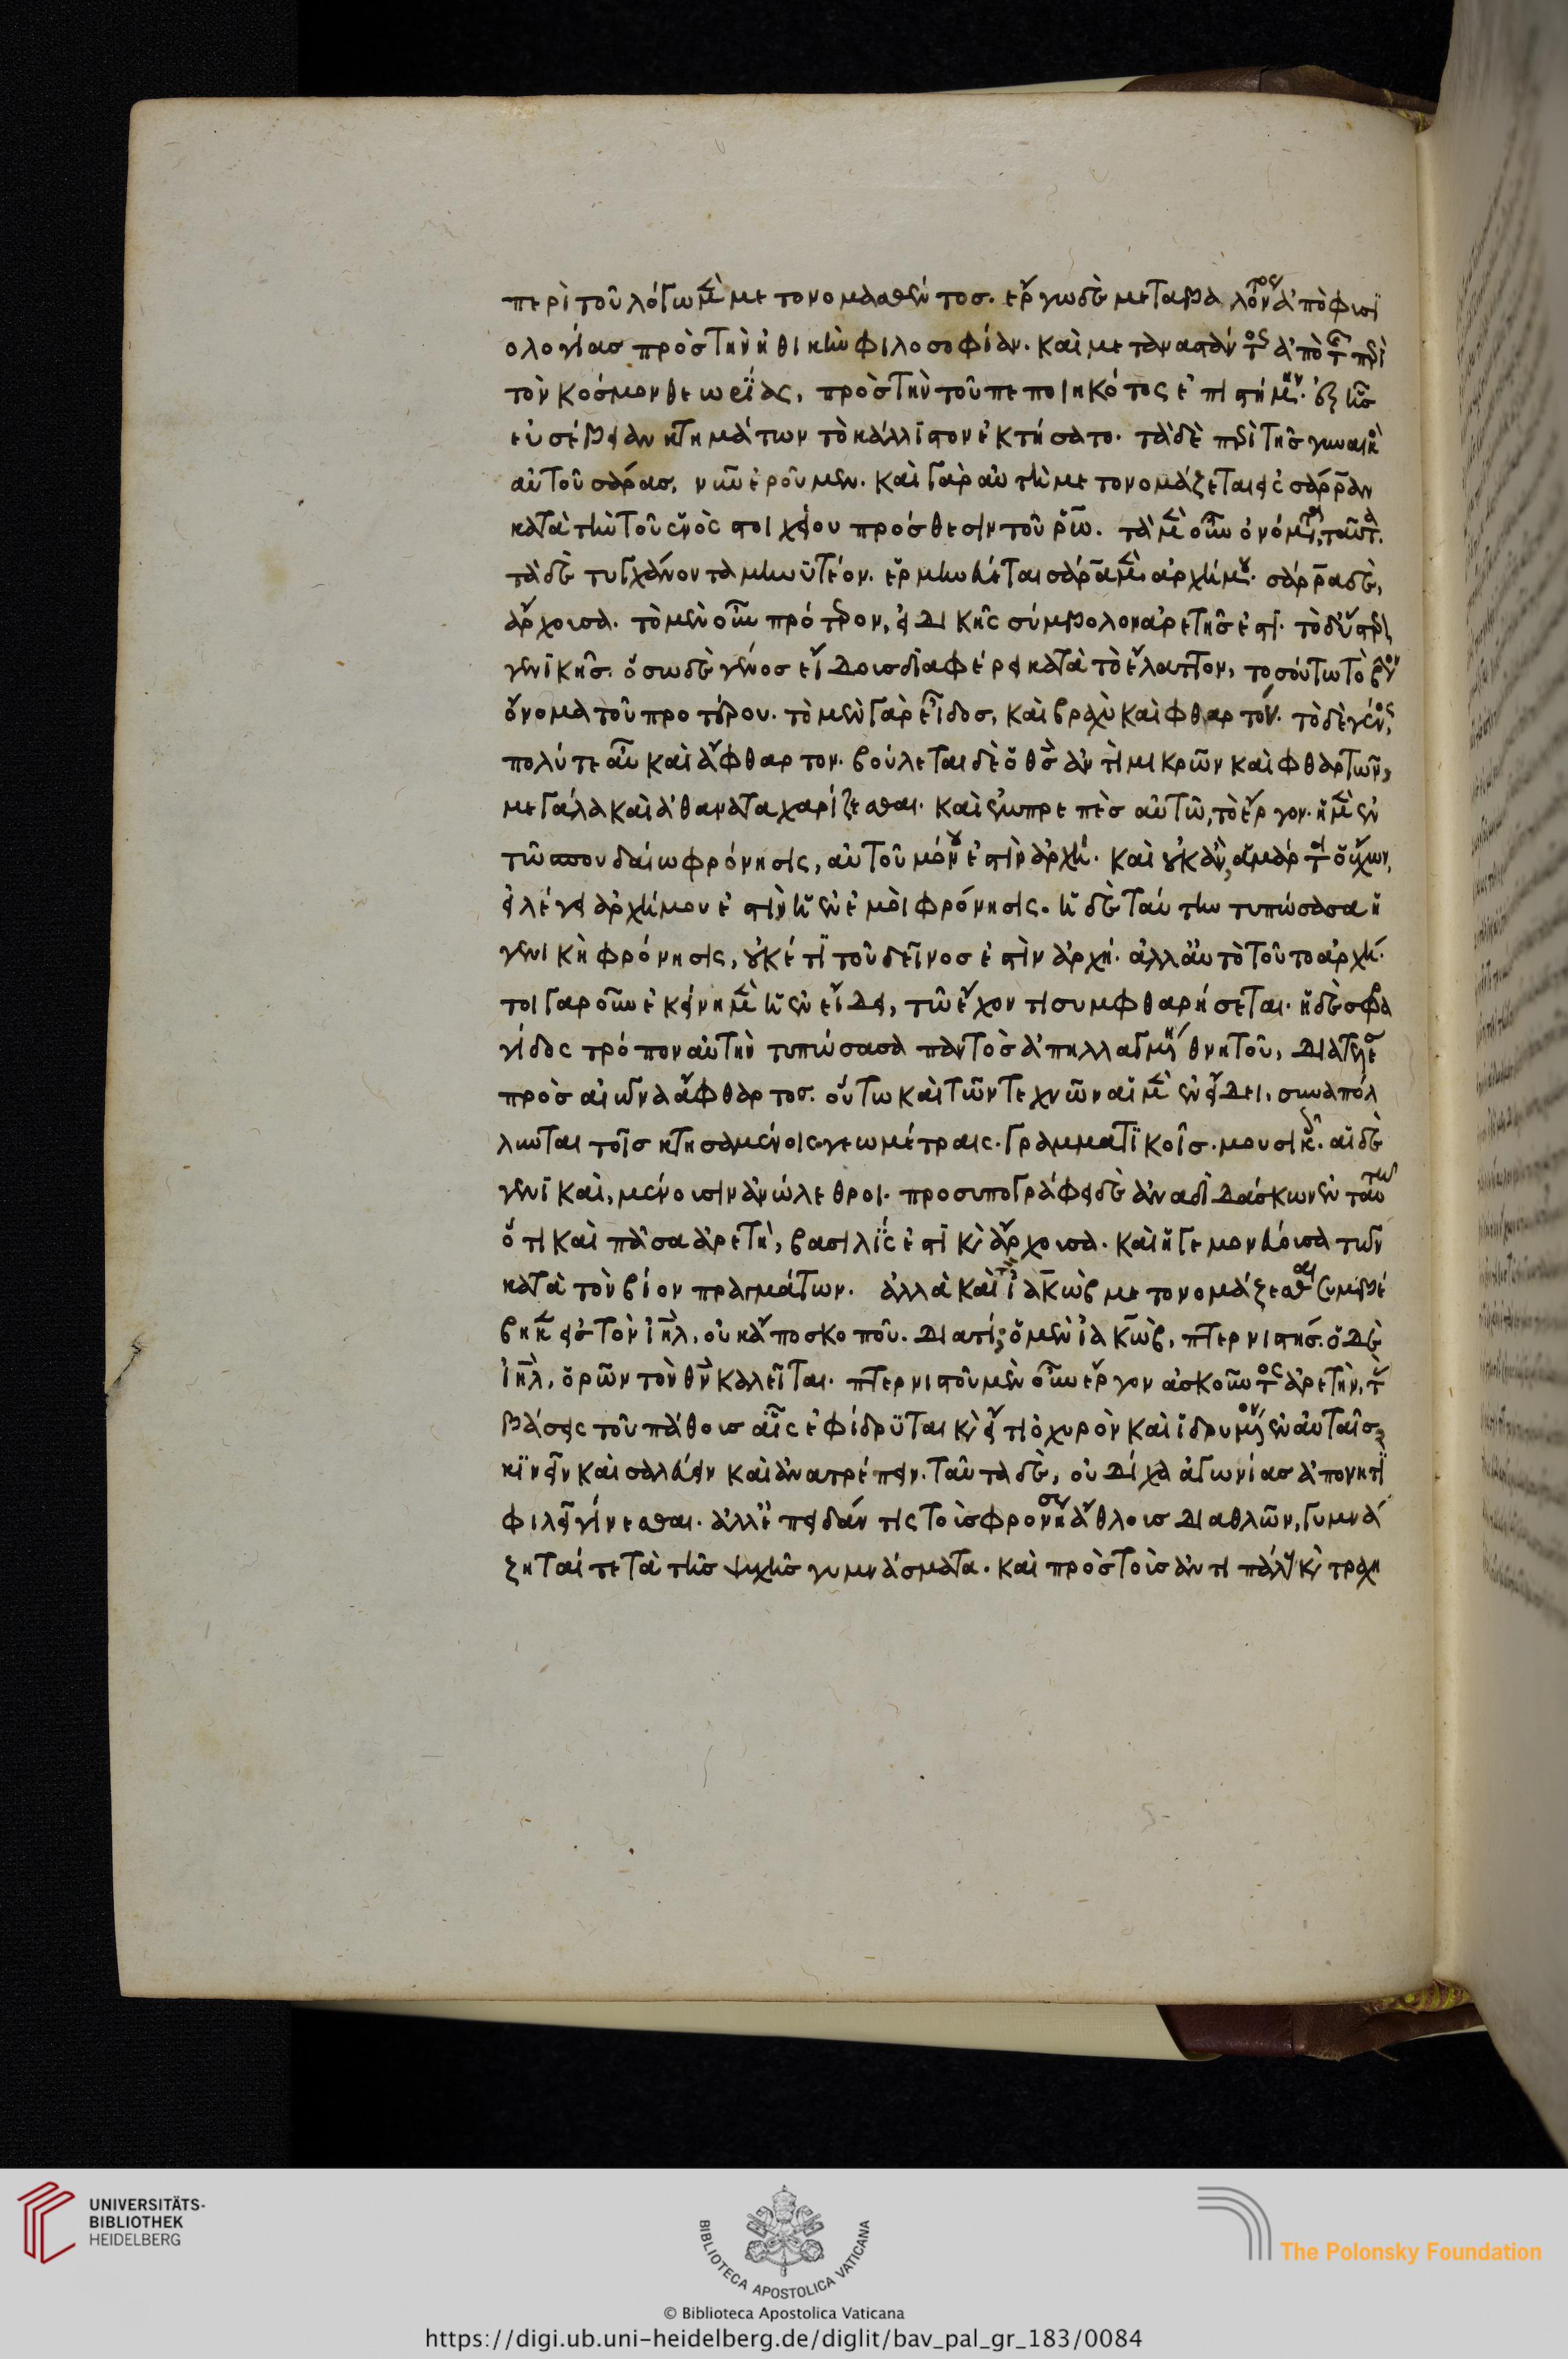 περὶ τοῦ λόγω μὲν μετονομασθέντος. ἔργω δὲ μεταβαλόντος ἀπὸ φυσϊ
ολογίας πρὸς τὴν ἠθικὴν φιλοσοφίαν. καὶ μεταναστάντος ἀπὸ τῆς περὶ
τὸν κόσμον θεωρΐας, πρὸς τὴν τοῦ πεποιηκότος ἐπιστήμην. ἐξ ἧς
εὐσέβειαν κτημάτων τὸ κάλλιστον ἐκτήσατο. τὰ δὲ περὶ τῆς γυναικὸς
αὐτοῦ σάρας, νῦν ἐροῦμεν. καὶ γὰρ αὐτὴ μετονομάζεται εἰς σάρραν
κατὰ τὴν τοῦ ἑνὸς στοιχείου πρόσθεσιν τοῦ ρῶ. τὰ μὲν οὖν ὀνόματα, ταῦτα.
τὰ δὲ τυγχάνοντα μηνυτέον. ἑρμηνεύεται σάρα μὲν ἀρχή μου. σάρρα δὲ,
ἄρχουσα. τὸ μὲν οὖν πρότερον, εἰδικῆς σύμβολον ἀρετῆς ἐστι. τὸ δ' ὕστερον
γενϊκῆς. ὅσω δὲ γένος εἴδους διαφέρει κατὰ τὸ ἔλαττον, τοσούτω τὸ βον
ὄνομα τοῦ προτέρου. τὸ μὲν γὰρ εἶδος, καὶ βραχὺ καὶ φθαρτόν. τὸ δὲ γένος,
πολύ τε αὖ καὶ ἄφθαρτον. βούλεται δὲ ὁ θς ἀντὶ μικρῶν καὶ φθαρτῶν,
μεγάλα καὶ ἀθάνατα χαρίζεσθαι. καὶ ἐμπρεπὲς αὐτῶ, τὸ ἔργον. ἡ μὲν ἐν
τῶ σπουδαίω φρόνησις, αὐτοῦ μόνου ἐστὶν ἀρχή. καὶ οὐκ ἂν, ἁμάρτοι ὁ ἔχων,
εἰ λέγει ἀρχή μου ἐστὶν ἡ ἐν ἐμοὶ φρόνησις. ἡ δὲ ταύτην τυπώσασα ἡ
γενικὴ φρόνησις, οὐκέτϊ τοῦ δεῖνος ἐστὶν ἀρχή. ἀλλ' αὐτὸ τοῦτο ἀρχή.
τοιγαροῦν ἐκείνη μὲν ἡ ἐν εἴδει, τῶ ἔχοντι συμφθαρήσεται. ἡ δὲ σφρα
γίδος τρόπον αὐτὴν τυπώσασα παντὸς ἀπηλλαγμένη θνητοῦ, διατελεῖ
πρὸς αἰῶνα ἄφθαρτος. οὕτω καὶ τῶν τεχνῶν αἱ μὲν ἐν εἴδει, συναπόλ
λυνται τοῖς κτησαμένοις γεωμέτραις. γραμματϊκοῖς. μουσικοῖς. αἱ δὲ
γενϊκαὶ, μένουσιν ἀνώλεθροι. προσυπογράφει δὲ ἀναδιδάσκων ἐν ταυτῶ
ὅτι καὶ πᾶσα ἀρετὴ, βασιλΐς ἐστϊ κ ἄρχουσα. καὶ ἡγεμονεύουσα τῶν
κατὰ τὸν βίον πραγμάτων. ἀλλὰ καὶ τὸν ἰακὼβ μετονομάζεσθαι συμβέ
βηκεν εἰς τὸν ἰηλ, οὐκ ἄπο σκοποῦ. διατί; ὁ μὲν ἰακὼβ, πτερνιστής. ὁ δὲ
ἰηλ, ὁρῶν τὸν θν καλεῖται. πτερνιστοῦ μὲν οὖν ἔργον ἀσκοῦντος ἀρετὴν, τὰς
βάσεις τοῦ πάθους αἷς ἐφίδρϋται κ εἴ τι ὀχυρὸν καὶ ἱδρυμένον ἐν αὐταῖς,
κϊνεῖν καὶ σαλεύειν καὶ ἀνατρέπειν. ταῦτα δὲ, οὐ δίχα ἀγωνίας ἀπονητϊ
φιλεῖ γίνεσθαι. ἀλλ' ἐπειδάν τις τοὺς φρονήσεως ἄθλους διαθλῶν, γυμνά
ζηταί τε τὰ τῆς ψυχῆς γυμνάσματα. καὶ πρὸς τοὺς ἀντιπάλους κ τραχη
UNIVERSITÄTS-
BIBLIOTHEK
HEIDELBERG
BIBLIOTECA APOSTOLICA VATICANA
The Polonsky Foundation
© Biblioteca Apostolica Vaticana
https://digi.ub.uni-heidelberg.de/diglit/bav_pal_gr_183/0084